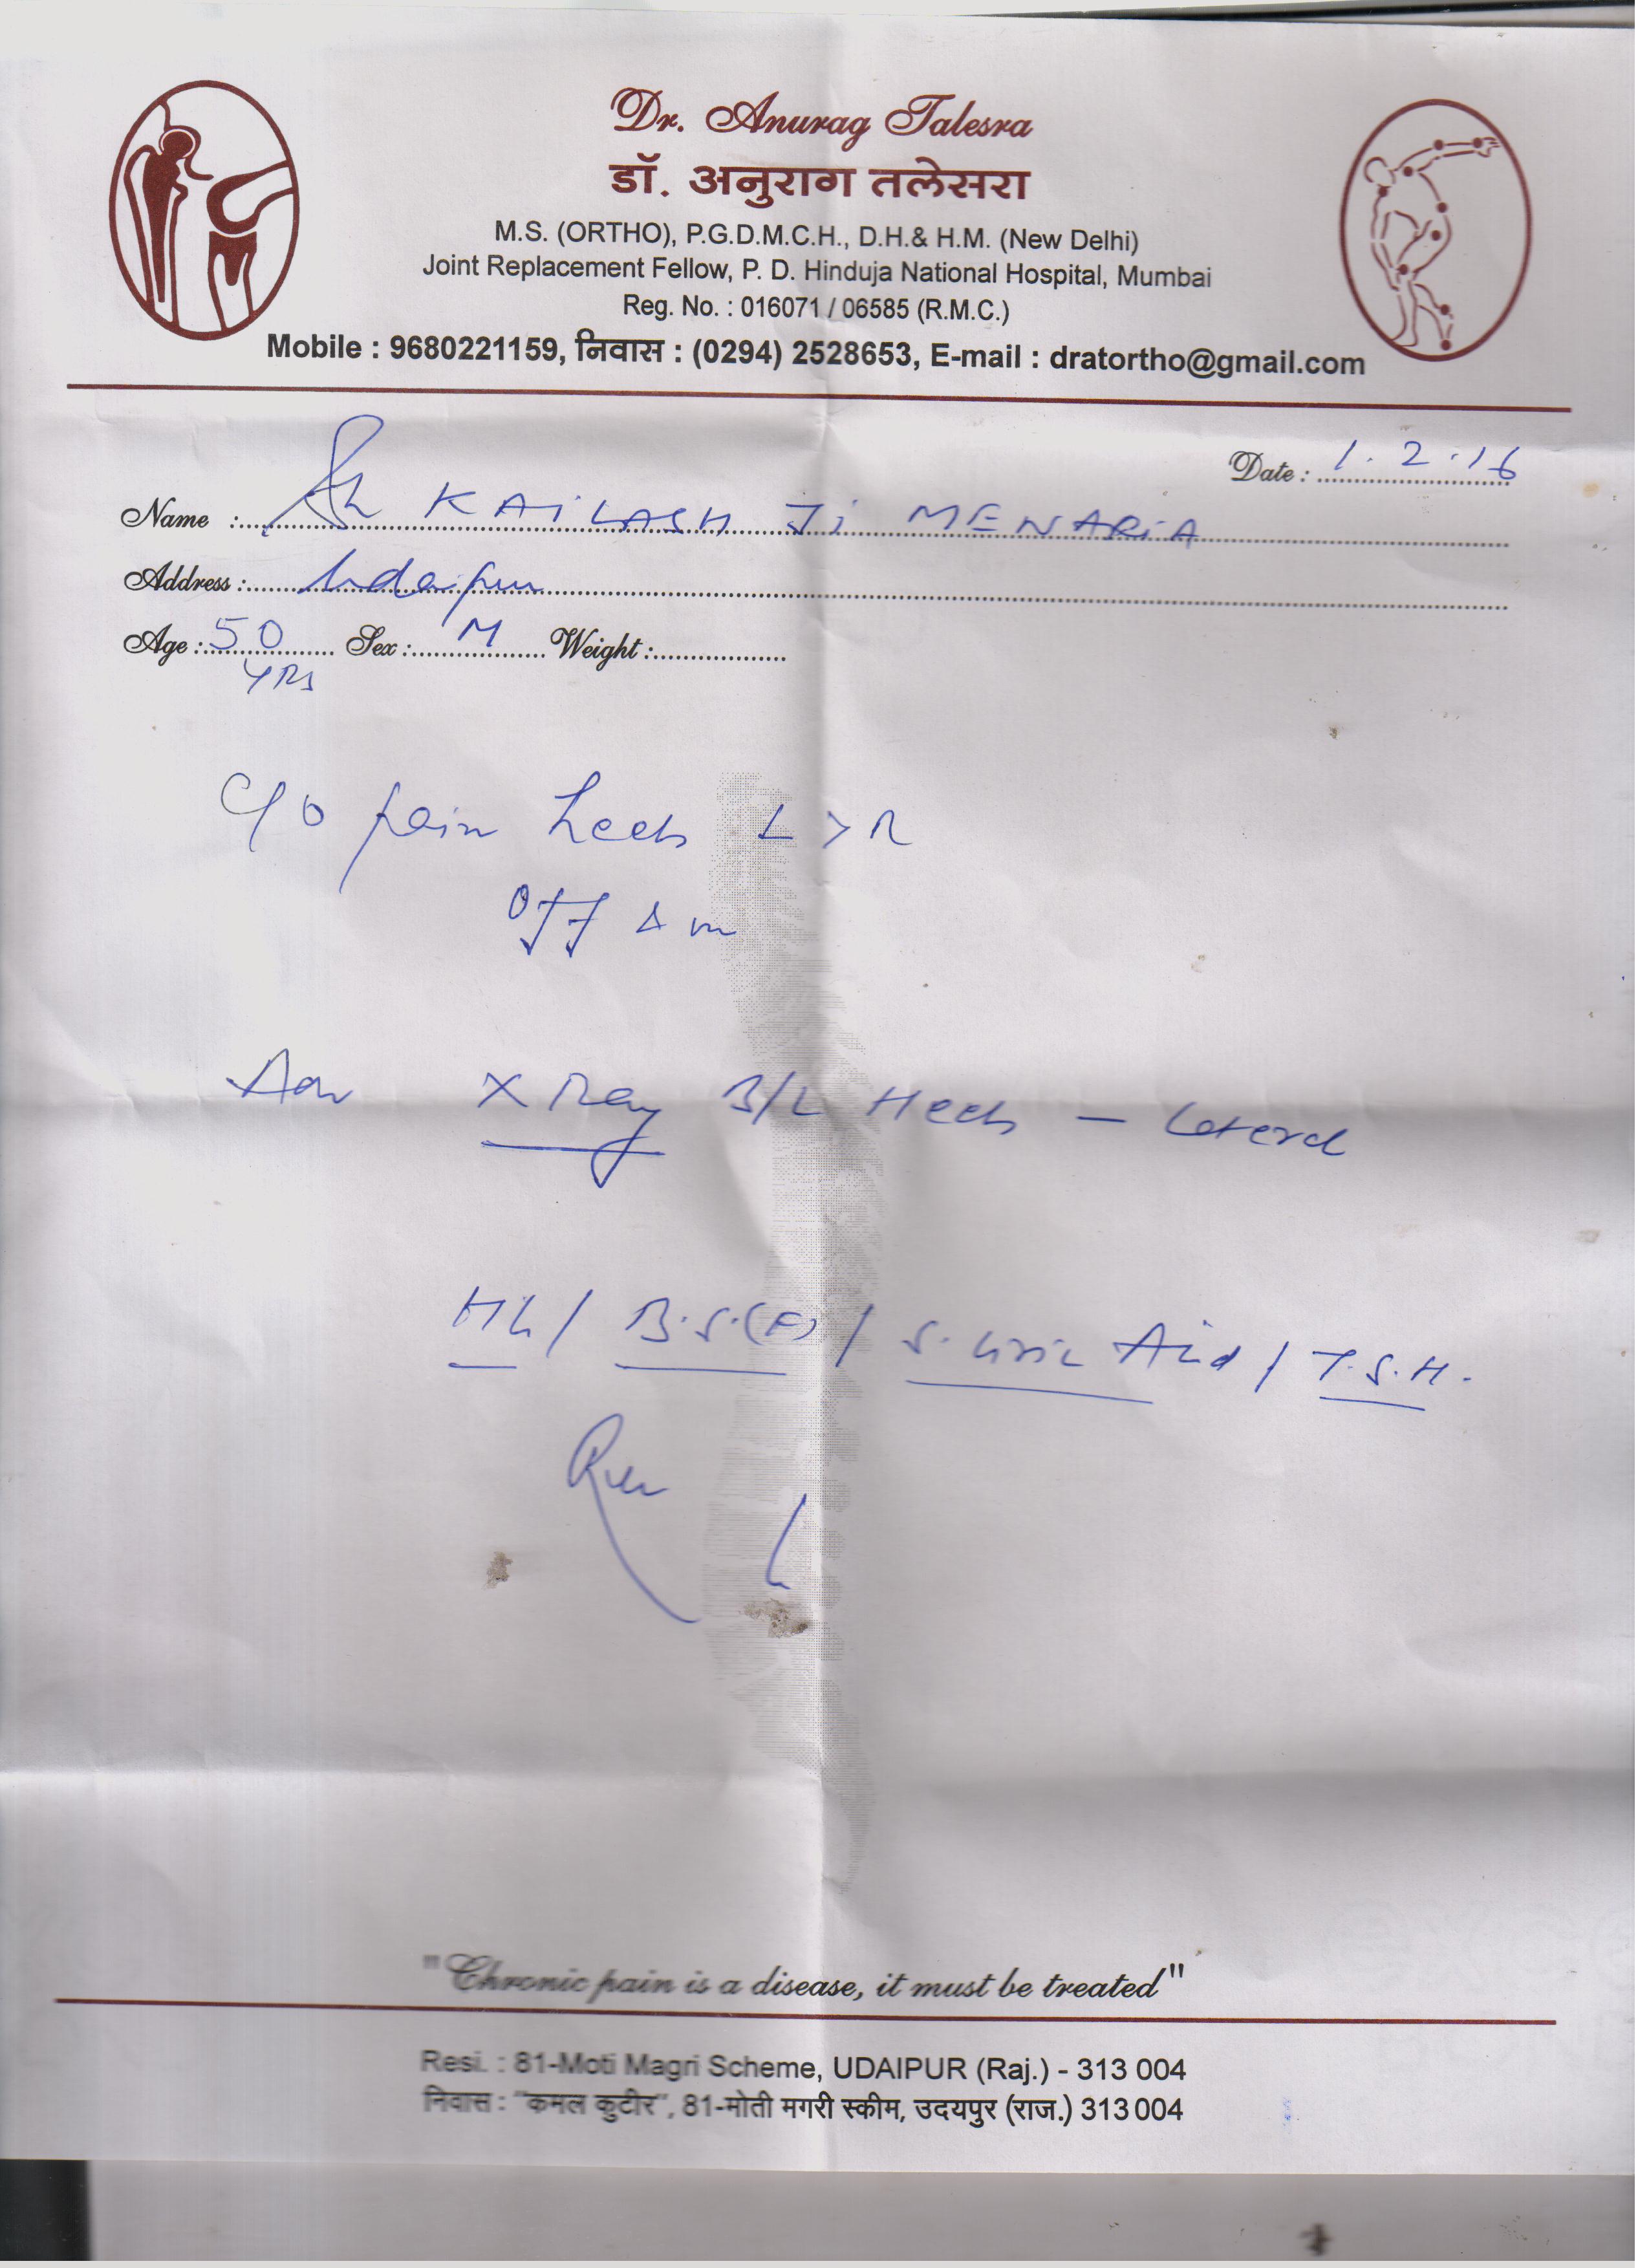 Dr. Anurag Talesra
डॉ. अनुराग तलेसरा
M.S. (ORTHO), P.G.D.M.C.H., D.H.& H.M. (New Delhi)
Joint Replacement Fellow, P. D. Hinduja National Hospital, Mumbai
Reg. No. : 016071 / 06585 (R.M.C.)
Mobile : 9680221159, निवास : (0294) 2528653, E-mail : dratortho@gmail.com
Date : 1.2.16
Name : Sh KAiLASH Ji MENARiA
Address : Udaipur
Age : 50 Sex : M Weight :
YRS
C/o pain heels L > R
Off
Adv X Ray B/L Heels - Lateral
Hb / B.S.(F) / S. Uric Acid / T.S.H.
"Chronic pain is a disease, it must be treated"
Resi. : 81-Moti Magri Scheme, UDAIPUR (Raj.) - 313 004
निवास : "कमल कुटीर", 81-मोती मगरी स्कीम, उदयपुर (राज.) 313 004